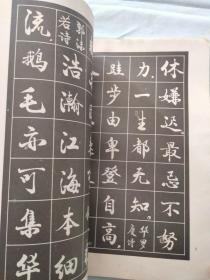 休嫌迟最忌不努
力一生都无知
华罗
庚诗
跬步由卑登自高
郭沫
若诗
浩瀚江海本细
流鹅毛亦可集华